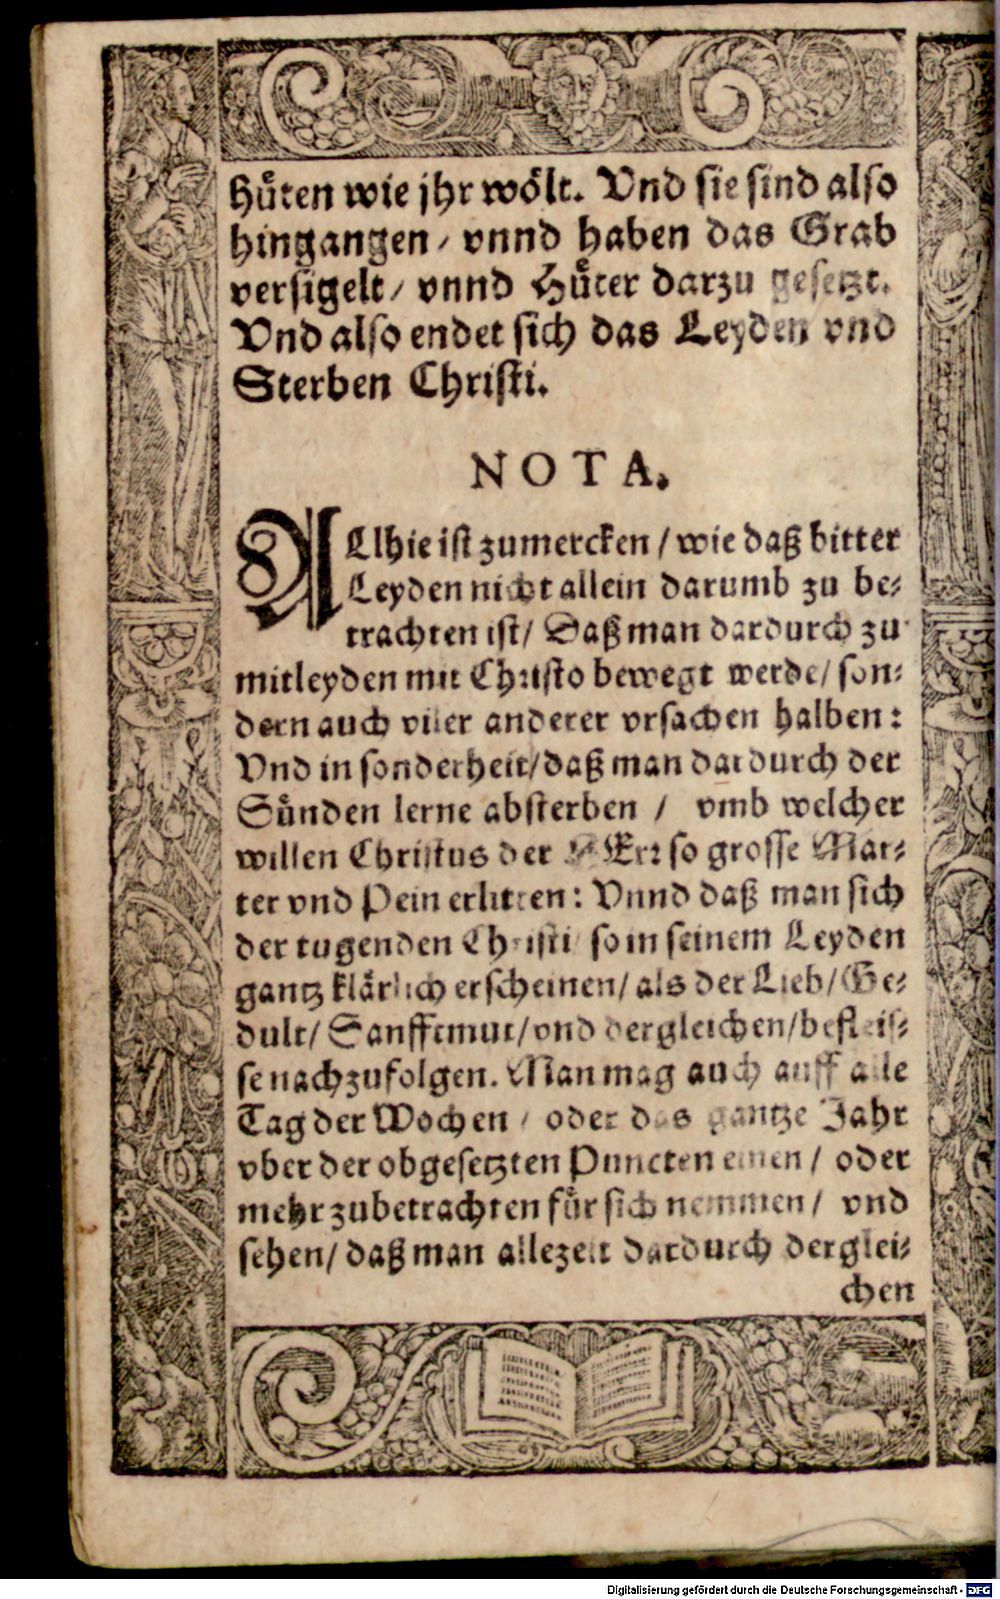 Hüten wie jhr wölt. Vnd sie sind also
hingangen / vnnd haben das Grab
versigelt / vnnd Hüter darzu gesetzt.
Vnd also endet sich das Leyden vnd
Sterben Christi.
NOTA.
ALlhie ist zumercken / wie daß bitter
Leyden nicht allein darumb zu be-
trachten ist / Daß man dardurch zu
mitleyden mit Christo bewegt werde / son-
dern auch viler anderer vrsachen halben:
Vnd in sonderheit / daß man dardurch der
Sünden lerne absterben / vmb welcher
willen Christus der HErr so grosse Mar-
ter vnd Pein erlitten: Vnnd daß man sich
der tugenden Christi so in seinem Leyden
gantz klärlich erscheinen / als der Lieb / Ge-
dult / Sanfftmut / vnd dergleichen / befleis-
se nachzufolgen. Man mag auch auff alle
Tag der Wochen / oder das gantze Jahr
vber der obgesetzten Puncten einen / oder
mehr zubetrachten für sich nemmen / vnd
sehen / daß man allezeit dardurch derglei-
chen
Digitalisierung gefördert durch die Deutsche Forschungsgemeinschaft - DFG